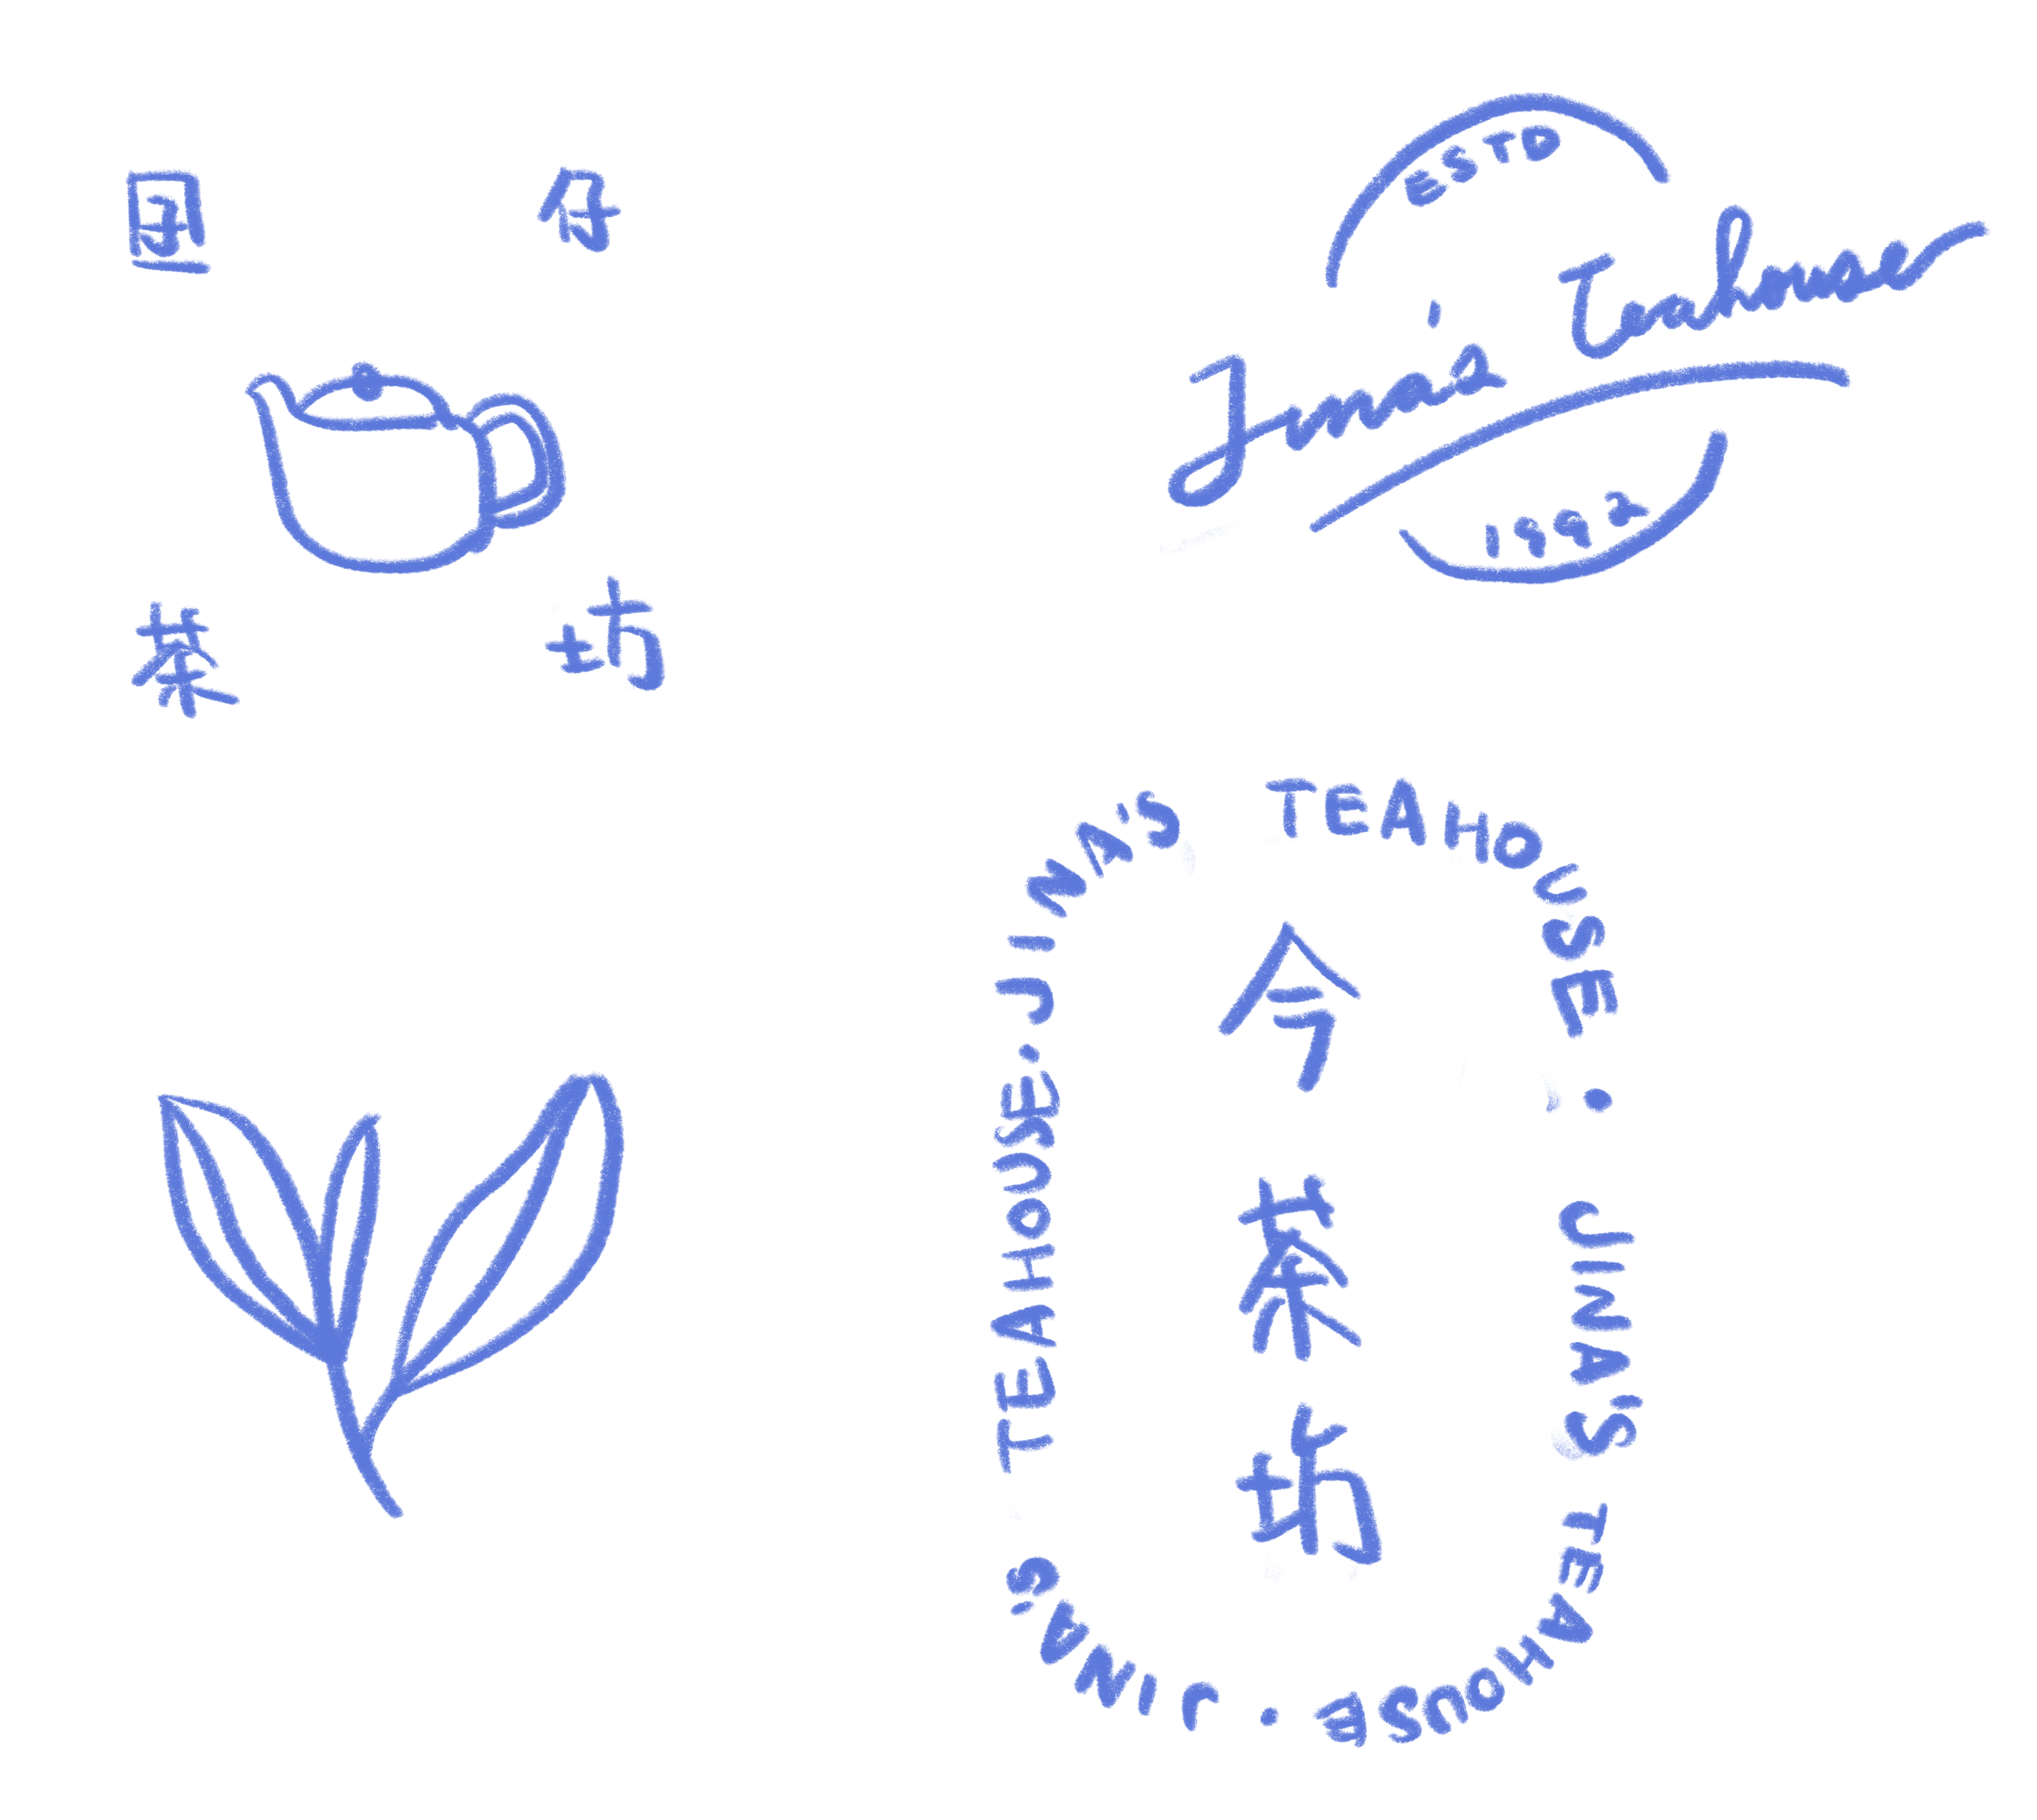 囝 仔
茶 坊
ESTD
Jina's Teahouse
1992
JINA'S TEAHOUSE · JINA'S TEAHOUSE · JINA'S TEAHOUSE ·
今
茶
坊